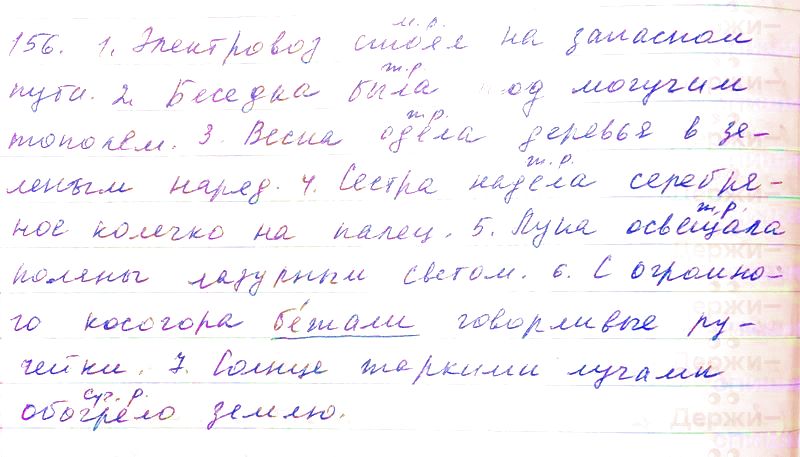 м. р.
156. 1. Электровоз стоял на запасном
ж.р.
пути. 2. Беседка была под могучим
ж.р.
тополем. 3. Весна одела деревья в зе-
ж.р.
леным наряд. 4. Сестра надела серебря-
ж.р.
ное колечко на палец. 5. Луна освещала
поляны лазурным светом. 6. С огромно-
го косогора бежали говорливые ру-
чейки. 7. Солнце жаркими лучами
ср. р.
обогрело землю.